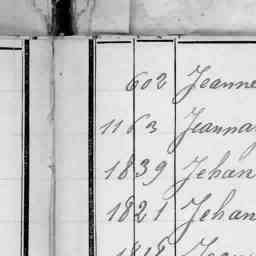 602 Jeanne
1163 Jeanna
1839 Jehan
1821 Jehan